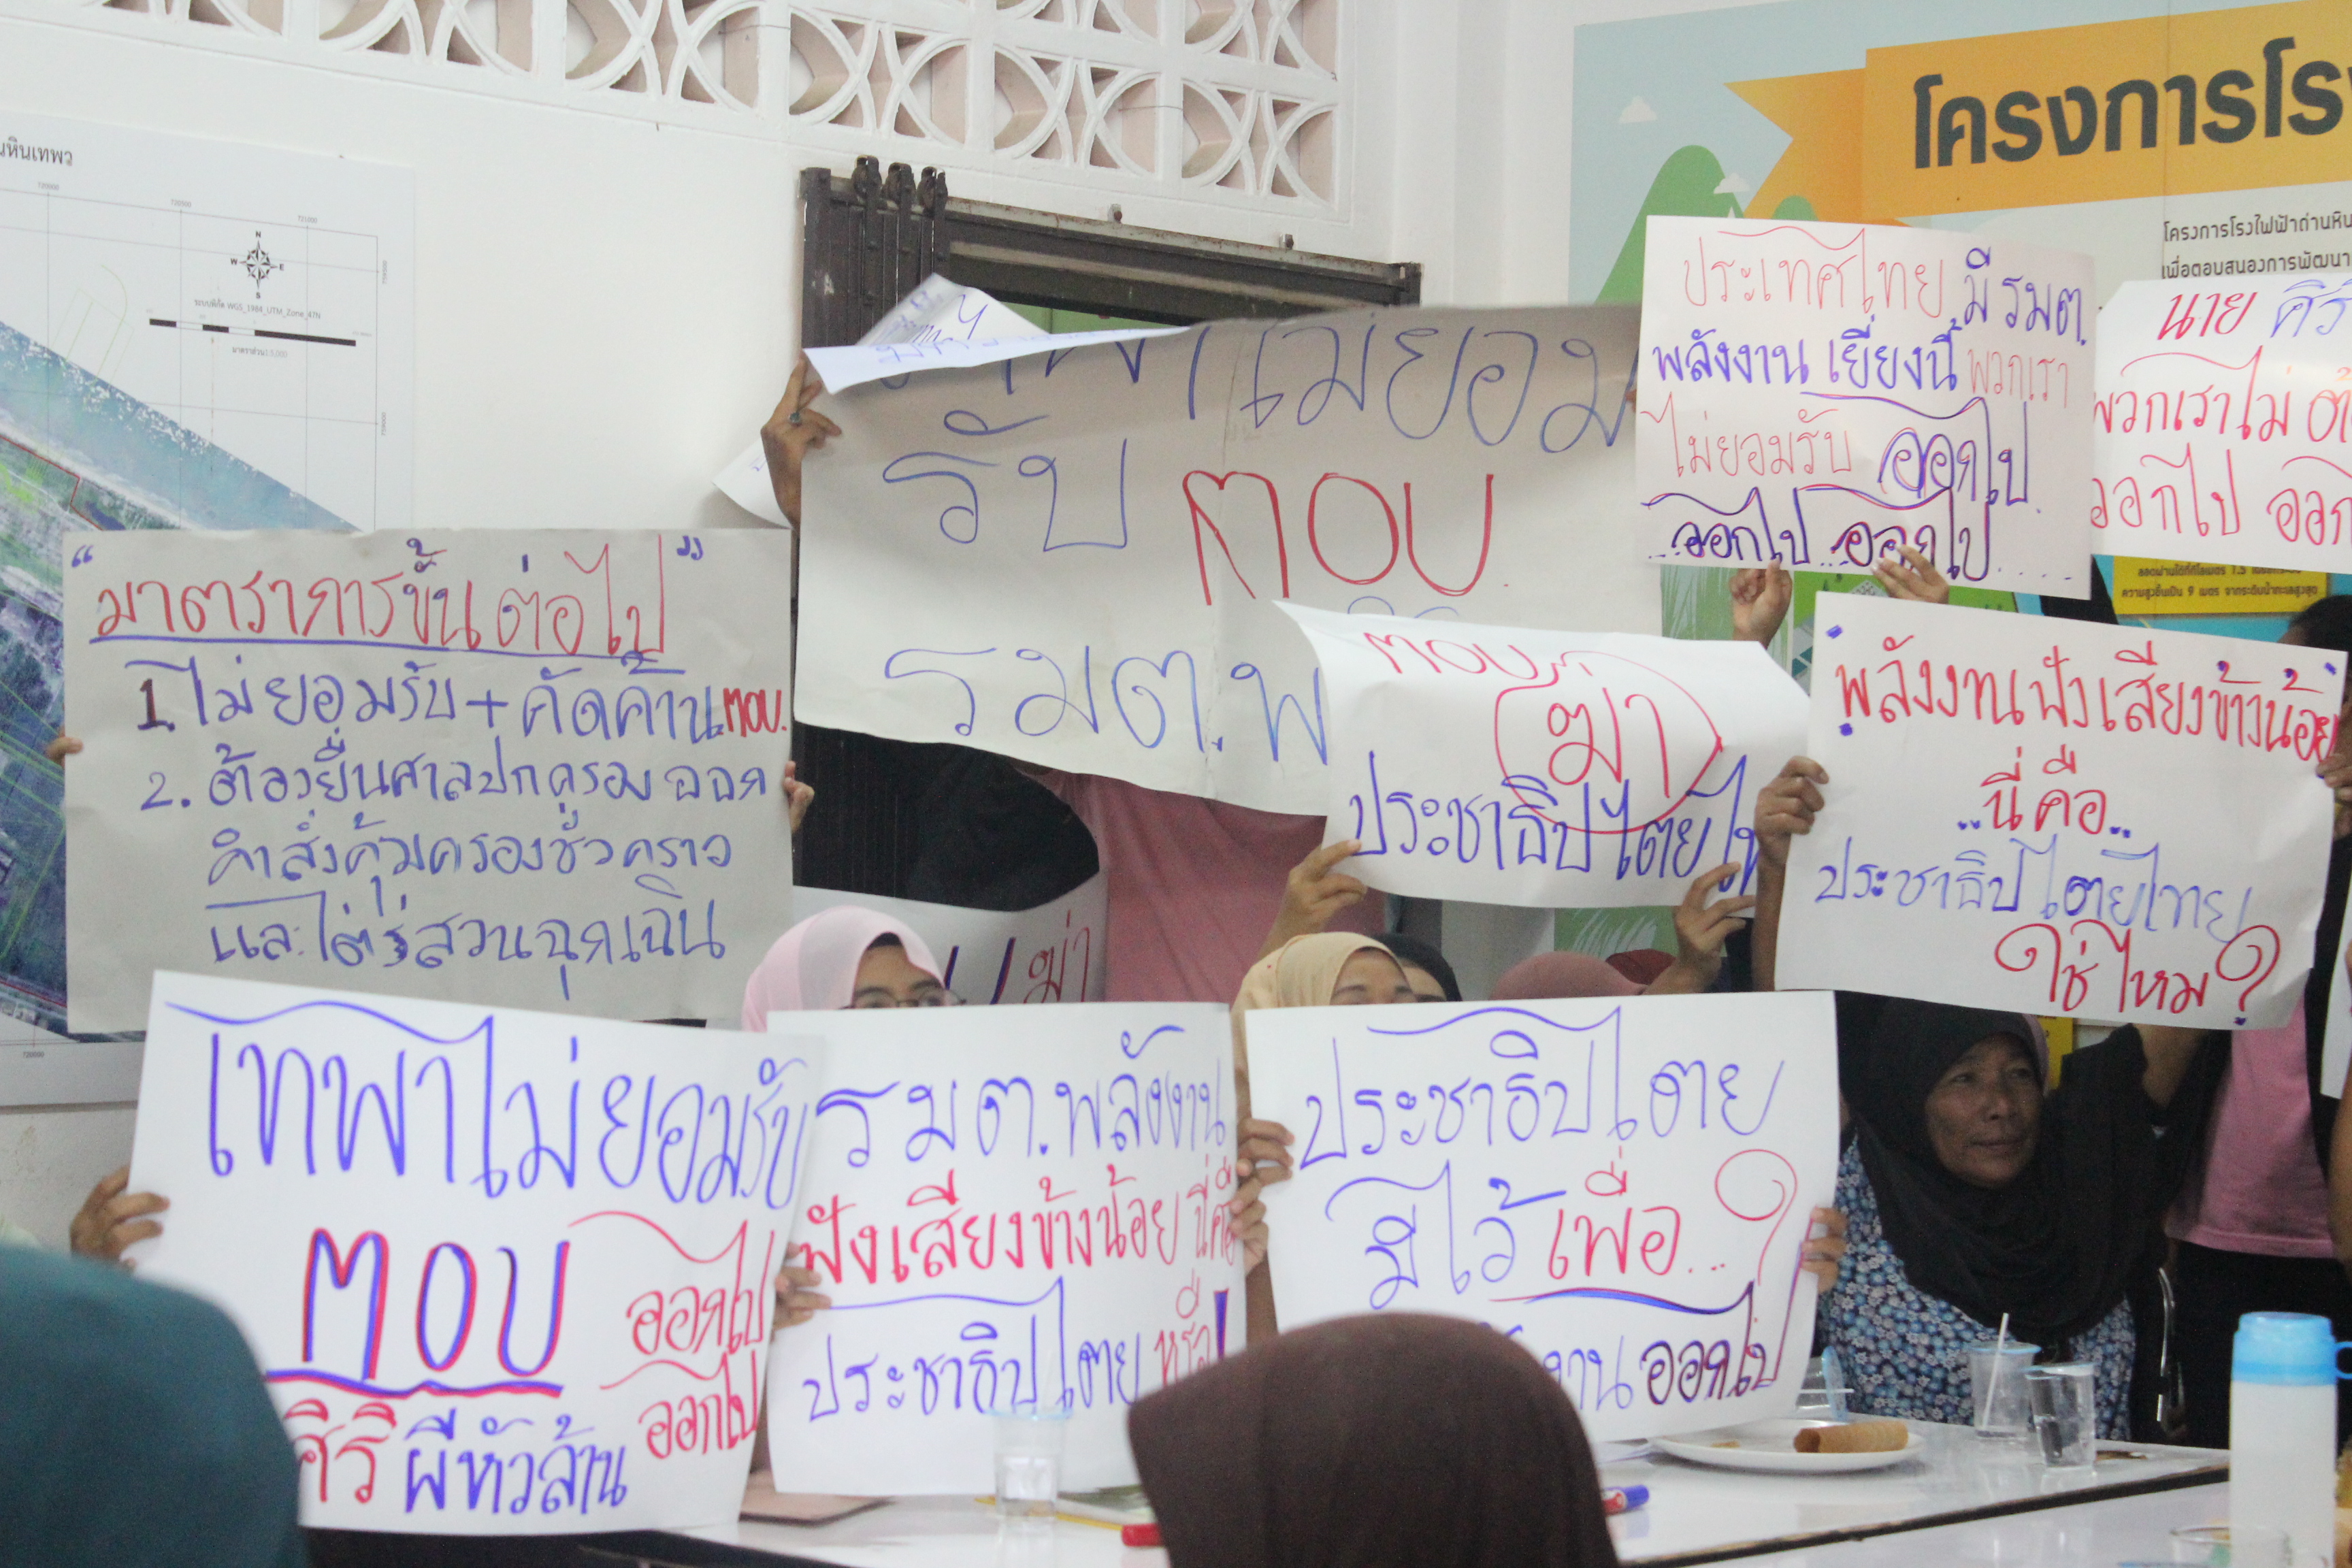 นหินเทพว
N
W
E
S
ระบบพิกัด WGS_1984_UTM_Zone_47N
โครงการโร
โครงการโรงไฟฟ้าถ่านหิน
เพื่อตอบสนองการพัฒนา
ความสูงชั้นเป็น 9 เมตร จากระดับน้ำทะเลสูงสุด
ประเทศไทย มี รมต.
พลังงาน เยี่ยงนี้ พวกเรา
ไม่ยอมรับ ออกไป
..ออกไป..ออกไป.....
นาย ศิริ
พวกเราไม่ ต้
ออกไป ออก
ไม่ยอม
รับ ตอบ.
รมต.พ
"มาตราการขั้นต่อไป"
1.ไม่ยอมรับ+คัดค้าน ตอบ.
2. ต้องยื่นศาลปกครอง ออก
คำสั่งคุ้มครองชั่วคราว
และไต่รสวนฉุกเฉิน
ตอบ.
ฆ่า
ประชาธิปไตยไ
ฆ่า
"พลังงานฟังเสียงข้างน้อย
..นี่คือ..
ประชาธิปไตยไทย
ใช่ไหม?
เทพาไม่ยอมรับ
ตอบ
ออกไป
ออกไป
ศิริ ผีหัวล้าน
รมต.พลังงาน
ฟังเสียงข้างน้อย นี่คือ
ประชาธิปไตย หรือ!
ประชาธิปไตย
มีไว้เพื่อ...?
งาน ออกไป